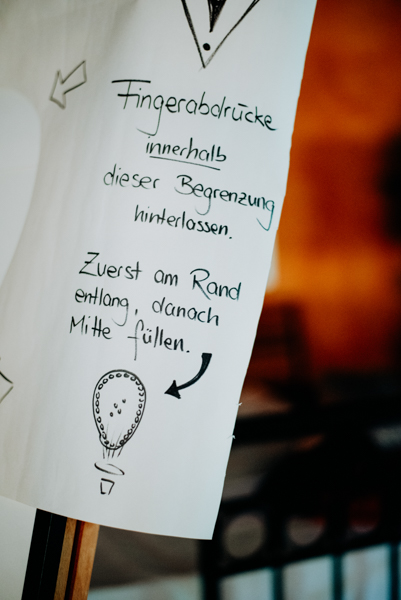 Fingerabdrücke
innerhalb
dieser Begrenzung
hinterlassen.
Zuerst am Rand
entlang, danach
Mitte füllen.